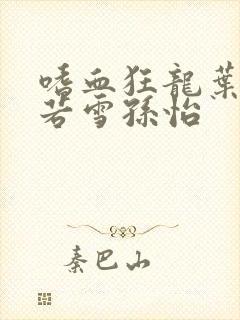 嗜血狂龍葉
若雪孫怡
秦巴山